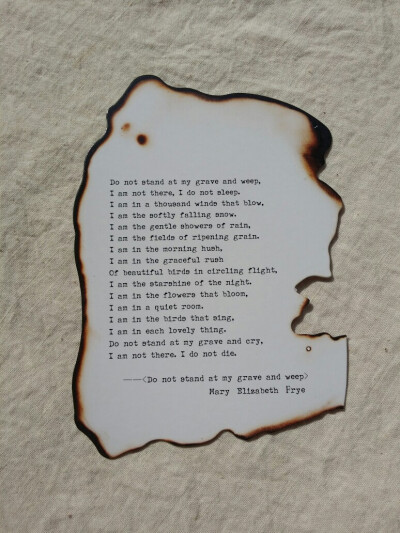 Do not stand at my grave and weep,
I am not there, I do not sleep.
I am in a thousand winds that blow,
I am the softly falling snow.
I am the gentle showers of rain,
I am the fields of ripening grain.
I am in the morning hush,
I am in the graceful rush
Of beautiful birds in circling flight,
I am the starshine of the night.
I am in the flowers that bloom,
I am in a quiet room.
I am in the birds that sing,
I am in each lovely thing.
Do not stand at my grave and cry,
I am not there. I do not die.
——〈Do not stand at my grave and weep〉
Mary Elizabeth Frye